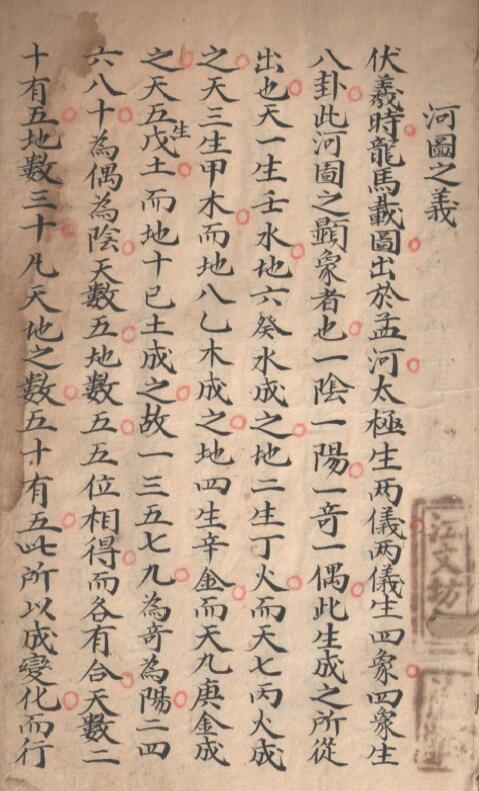 河圖之義
伏羲時龍馬載圖出於孟河太極生两儀两儀生四象四象生
八卦此河圖之顯象者也一陰一陽一奇一偶此生成之所從
出也天一生壬水地六癸水成之地二生丁火而天七丙火成
之天三生甲木而地八乙木成之地四生辛金而天九庚金成
之天五生戊土而地十己土成之故一三五七九為奇為陽二四
六八十為偶為陰天數五地數五五位相得而各有合天數二
十有五地數三十凡天地之數五十有五此所以成變化而行
江文坊